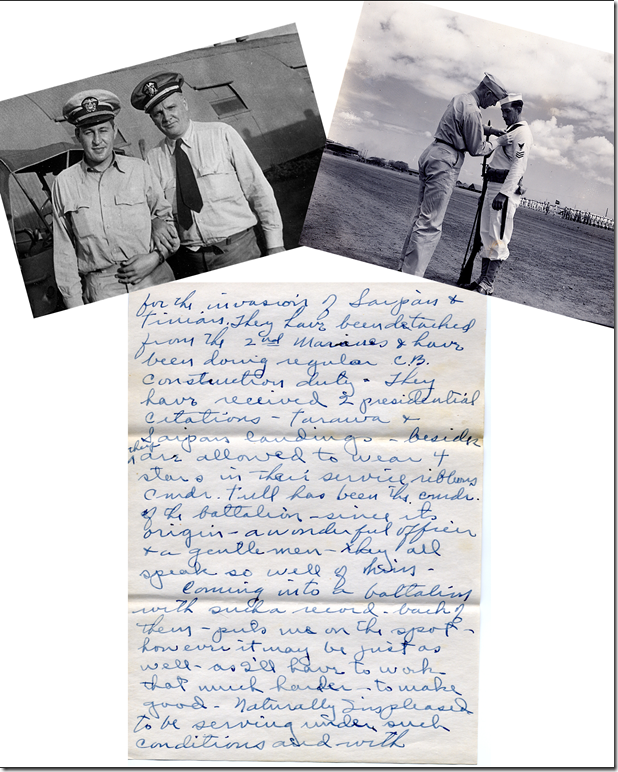 for the invasion of Saipan &
Tinian. They have been detached
from the 2nd Marines & have
been doing regular C.B.
construction duty. They
have received 2 presidential
citations - Tarawa &
Saipan landings - besides
they are allowed to wear 4
stars in their service ribbons
Cmdr. has been the cmdr.
of the battalion - since its
origin - a wonderful officer
& a gentlemen - they all
speak so well of him -
Coming into a battalion
with such a record - back of
them - puts me on the spot -
however it may be just as
well - as I'll have to work
that much harder - to make
good - Naturally I'm pleased
to be serving under such
conditions and with